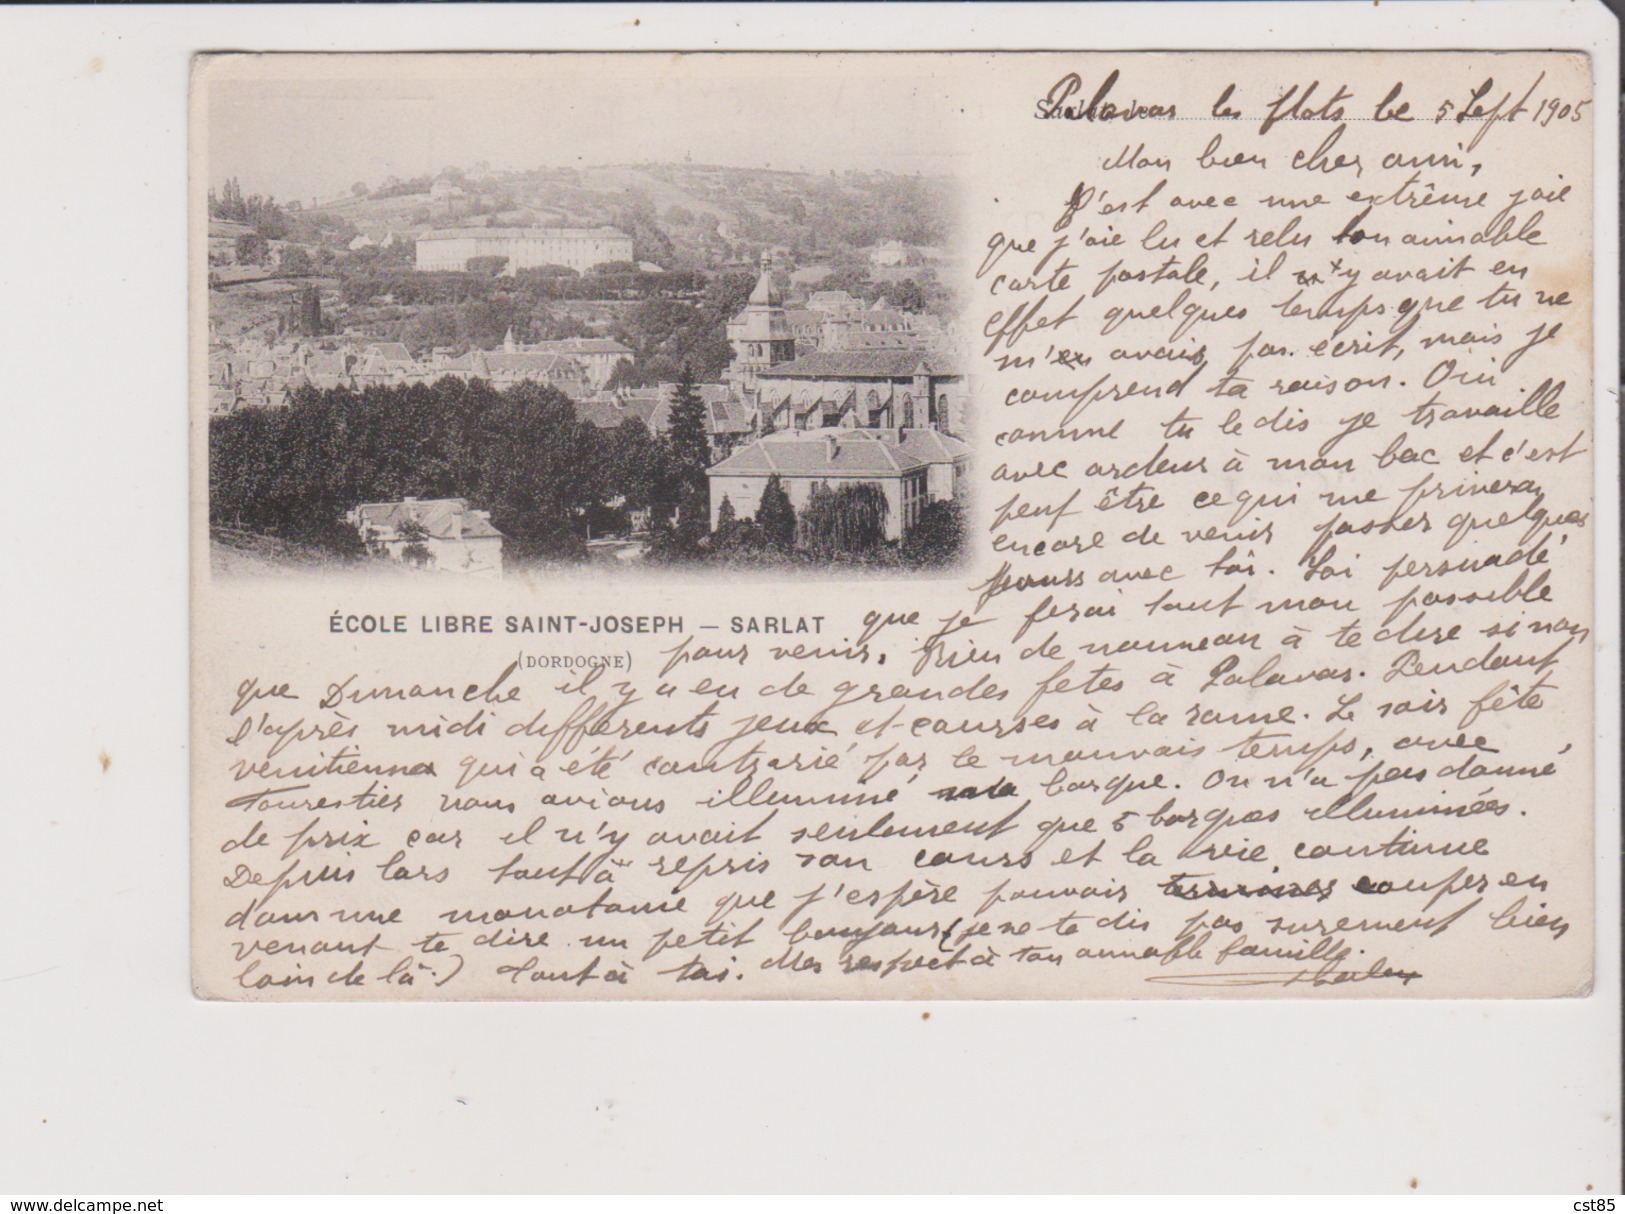 Palavas les flots le 5 Sept 1905
Mon bien cher ami,
C'est avec une extrême joie
que j'aie lu et relu ton aimable
carte postale, il y avait en
effet quelques temps que tu ne
m'en avais pas ecrit, mais je
comprend ta raison. Oui
comme tu le dis je travaille
avec ardeur à mon bac et c'est
peut être ce qui me privera
encore de venir passer quelques
jours avec toi. Soi persuadé
ÉCOLE LIBRE SAINT-JOSEPH — SARLAT
(DORDOGNE)
que je ferai tout mon possible
pour venir. Rien de nouveau à te dire si non
que Dimanche il y a eu de grandes fetes à Palavas. Pendant
l'après midi différents jeux et courses à la rame. Le soir fête
venitienne qui a été contrarié par le mauvais temps, avec
nous avions illuminé barque. On n'a pas donné
de prix car il n'y avait seulement que 5 barques illuminées.
Depuis lors tout à repris son cours et la vie continue
dans une monotonie que j'espère pouvoir couper en
venant te dire un petit bonjour (je ne te dis pas surement bien
loin de là.) Tout à toi. Mes respect à ton aimable famille.
cst85